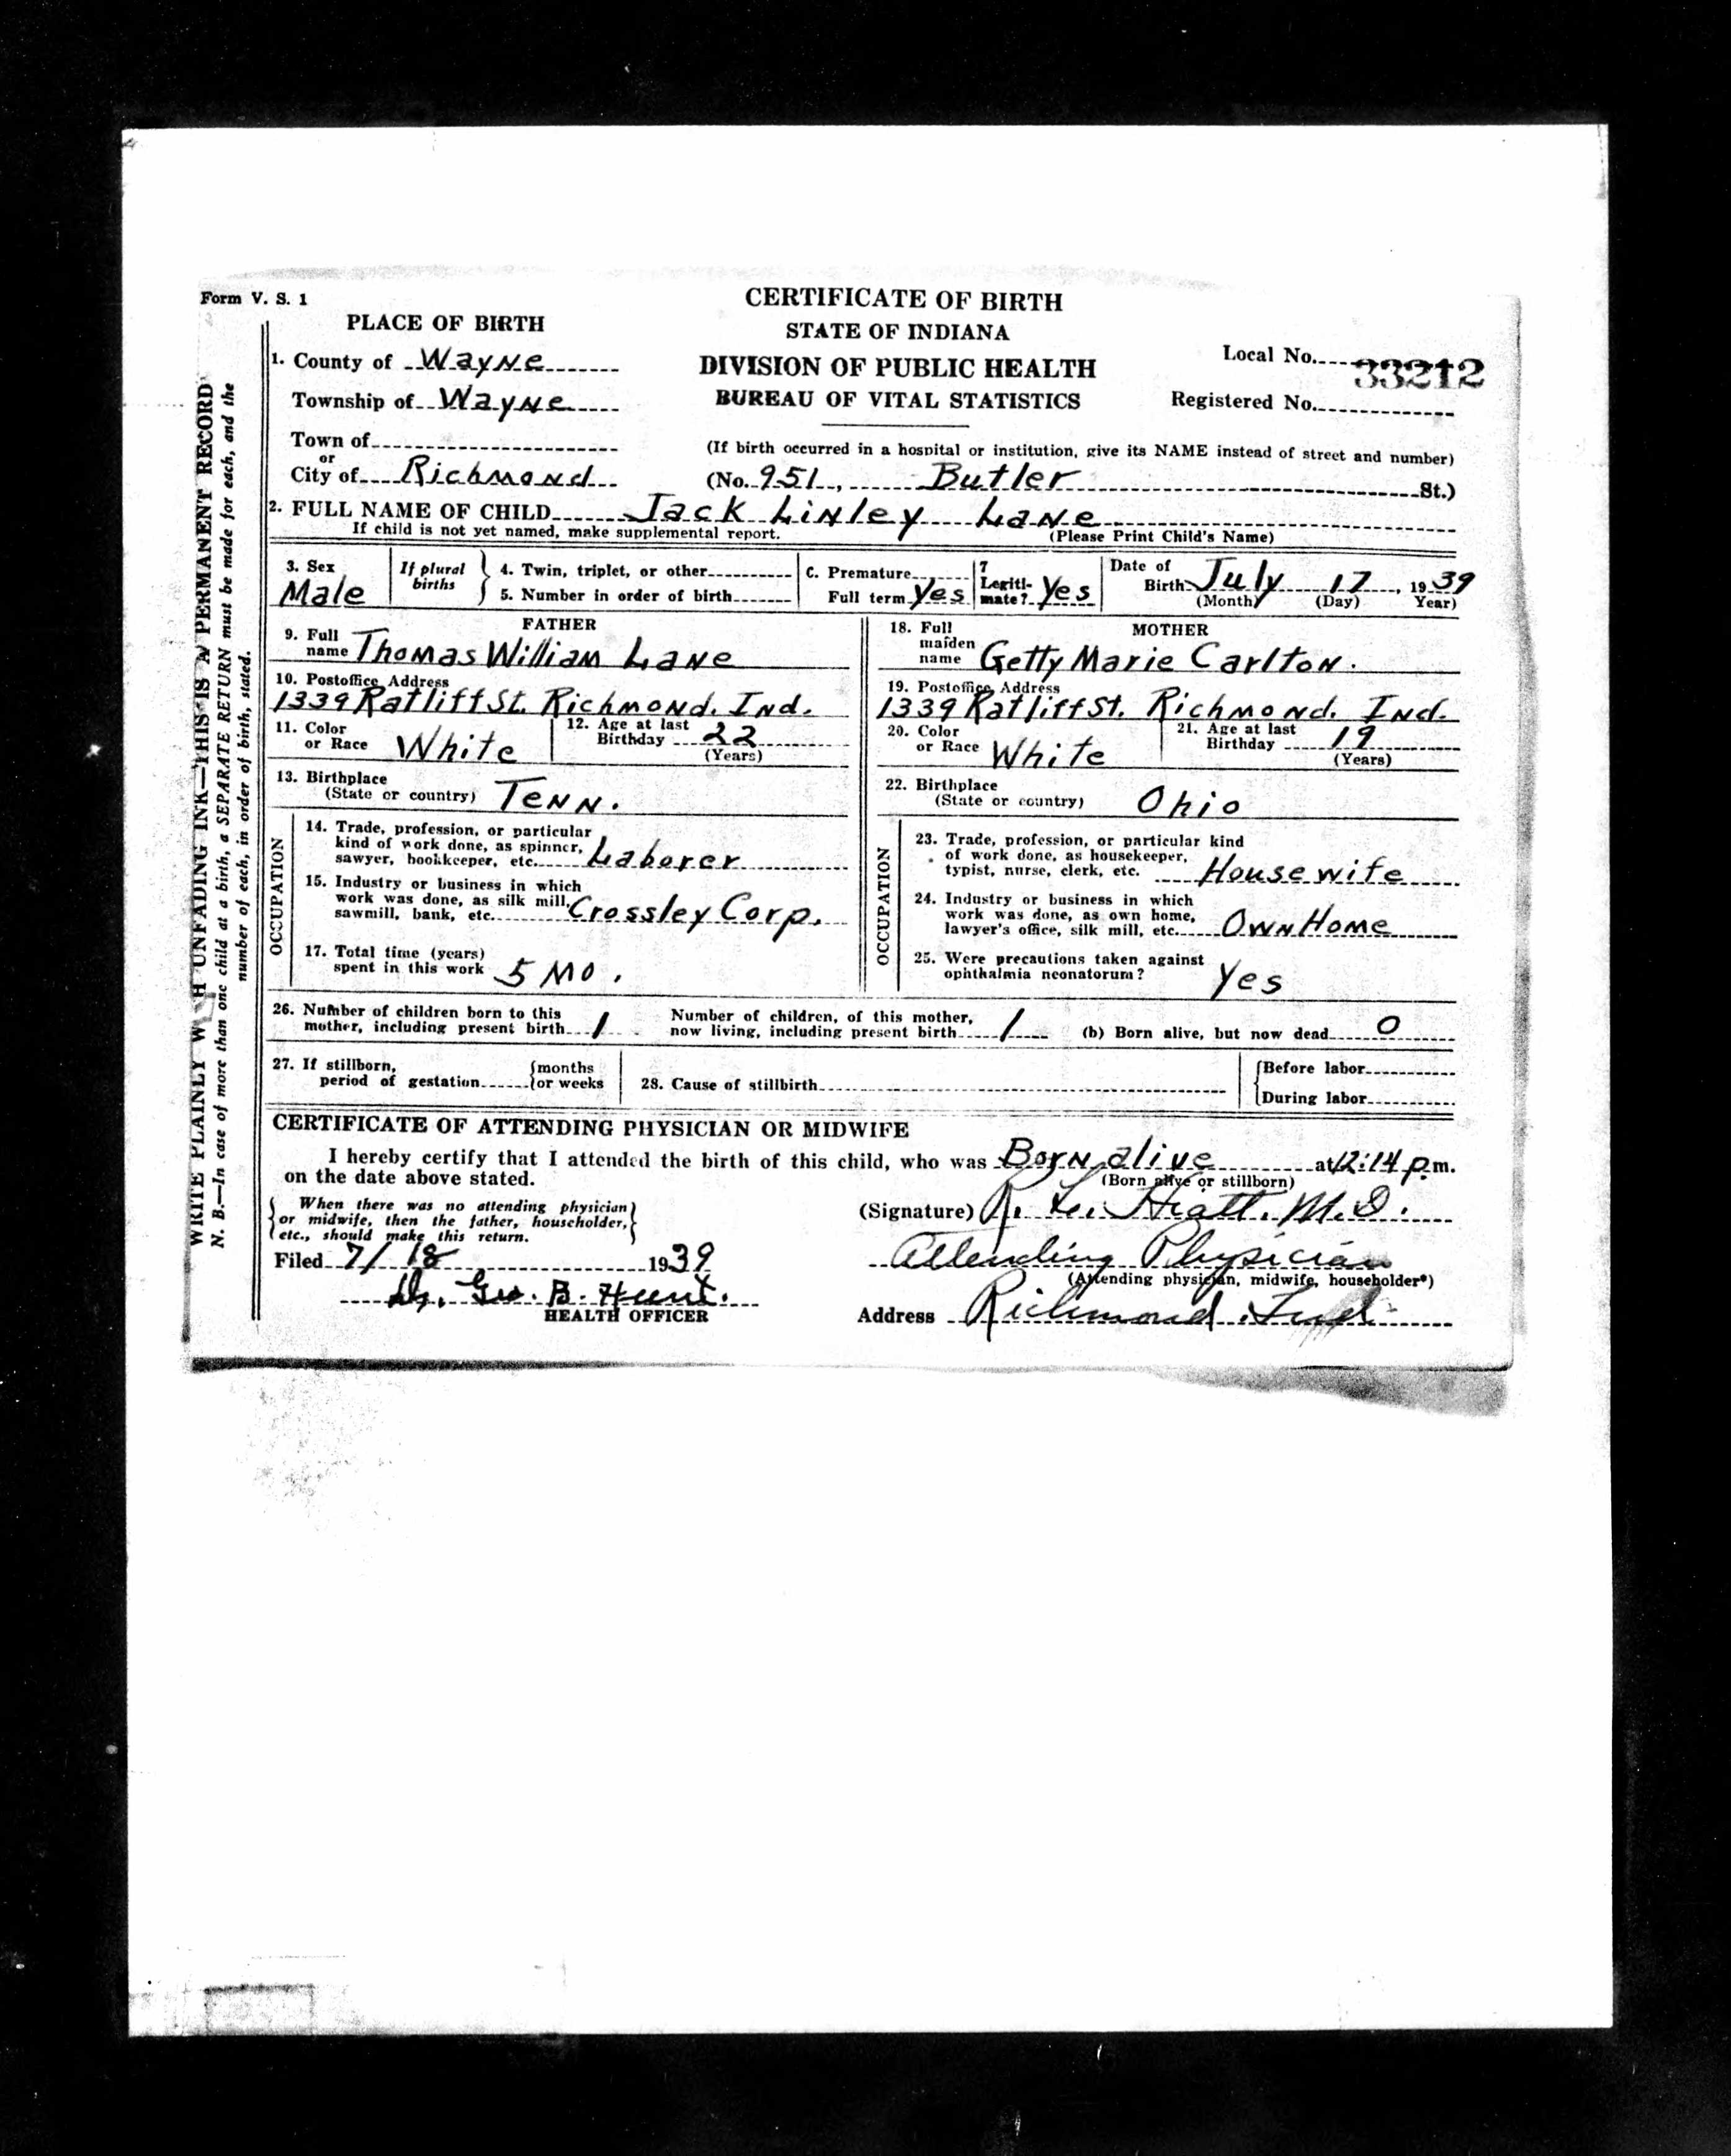 Form V. S. 1
CERTIFICATE OF BIRTH
STATE OF INDIANA
DIVISION OF PUBLIC HEALTH
BUREAU OF VITAL STATISTICS
PLACE OF BIRTH
1. County of Wayne
Township of Wayne
Town of
or
City of Richmond
Local No. 33212
Registered No.
(If birth occurred in a hospital or institution, give its NAME instead of street and number)
(No. 951, Butler St.)
2. FULL NAME OF CHILD Jack Linley Lane
If child is not yet named, make supplemental report. (Please Print Child's Name)
3. Sex
Male
If plural births
4. Twin, triplet, or other
5. Number in order of birth
C. Premature
Full term Yes
7 Legiti-
mate? Yes
Date of
Birth July 17, 1939
(Month) (Day) Year)
FATHER
9. Full
name Thomas William Lane
10. Postoffice Address
1339 Ratliff St. Richmond. Ind.
11. Color
or Race White
12. Age at last
Birthday 22
(Years)
13. Birthplace
(State or country) Tenn.
OCCUPATION
14. Trade, profession, or particular
kind of work done, as spinner,
sawyer, bookkeeper, etc. Laborer
15. Industry or business in which
work was done, as silk mill,
sawmill, bank, etc. Crossley Corp.
17. Total time (years)
spent in this work 5 Mo.
MOTHER
18. Full
maiden
name Getty Marie Carlton.
19. Postoffice Address
1339 Ratliff St. Richmond. Ind.
20. Color
or Race White
21. Age at last
Birthday 19
(Years)
22. Birthplace
(State or country) Ohio
OCCUPATION
23. Trade, profession, or particular kind
of work done, as housekeeper,
typist, nurse, clerk, etc. Housewife
24. Industry or business in which
work was done, as own home,
lawyer's office, silk mill, etc. Own Home
25. Were precautions taken against
ophthalmia neonatorum? Yes
26. Number of children born to this
mother, including present birth 1
Number of children, of this mother,
now living, including present birth 1
(b) Born alive, but now dead 0
27. If stillborn,
period of gestation {months
or weeks
28. Cause of stillbirth
{Before labor
During labor
CERTIFICATE OF ATTENDING PHYSICIAN OR MIDWIFE
I hereby certify that I attended the birth of this child, who was Born alive at 12:14 p.m.
on the date above stated. (Born alive or stillborn)
{When there was no attending physician
or midwife, then the father, householder,
etc., should make this return.}
(Signature) R. L. Hiatt. M.D.
Attending Physician
(Attending physician, midwife, householder*)
Filed 7/18 1939
Dr. Geo. B. Hunt.
HEALTH OFFICER
Address Richmond, Ind.
WRITE PLAINLY W H UNFADING INK—THIS IS A PERMANENT RECORD
N. B.—In case of more than one child at a birth, a SEPARATE RETURN must be made for each, and the
number of each, in order of birth, stated.